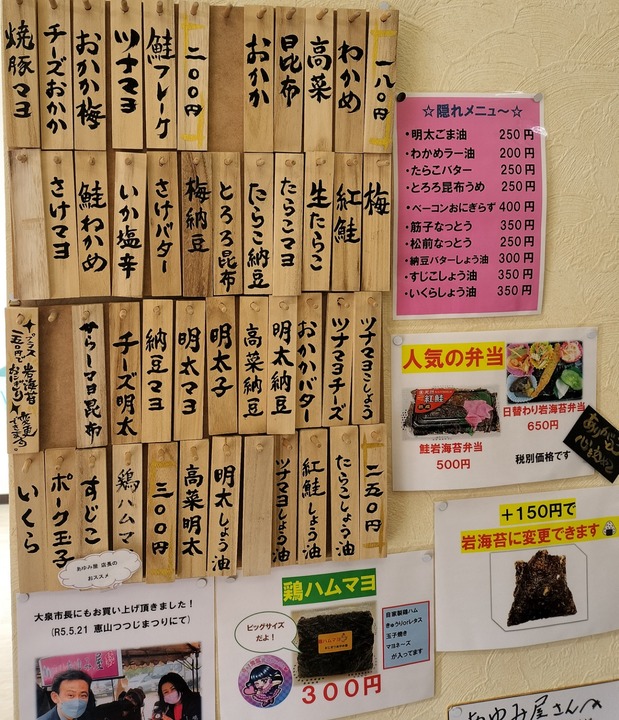 一八〇円
わかめ
高菜
昆布
おかか
二〇〇円
鮭フレーク
ツナマヨ
おかか梅
チーズおかか
焼豚マヨ
梅
紅鮭
生たらこ
たらこマヨ
たらこ納豆
とろろ昆布
梅納豆
さけバター
いか塩辛
鮭わかめ
さけマヨ
ツナマヨこしょう
ツナマヨチーズ
おかかバター
明太納豆
高菜納豆
明太子
明太マヨ
納豆マヨ
チーズ明太
サラーマヨ昆布
二五〇円
たらこしょう油
紅鮭しょう油
ツナマヨしょう油
明太しょう油
高菜明太
三〇〇円
鶏ハムマヨ
すじこ
ポーク玉子
いくら
☆隠れメニュ〜☆
・明太ごま油 250円
・わかめラー油 200円
・たらこバター 250円
・とろろ昆布うめ 250円
・ベーコンおにぎらず 400円
・筋子なっとう 350円
・松前なっとう 250円
・納豆バターしょう油 300円
・すじこしょう油 350円
・いくらしょう油 350円
人気の弁当
紅鮭
日替わり岩海苔弁当
650円
鮭岩海苔弁当
500円
税別価格です
＋150円で
岩海苔に変更できます
あゆみ屋 店長の
おススメ
大泉市長にもお買い上げ頂きました！
(R5.5.21 恵山つつじまつりにて)
鶏ハムマヨ
ビッグサイズ
だよ！
自家製鶏ハム
きゅうりorレタス
玉子焼き
マヨネーズ
が入ってます
３００円
あゆみ屋さんへ